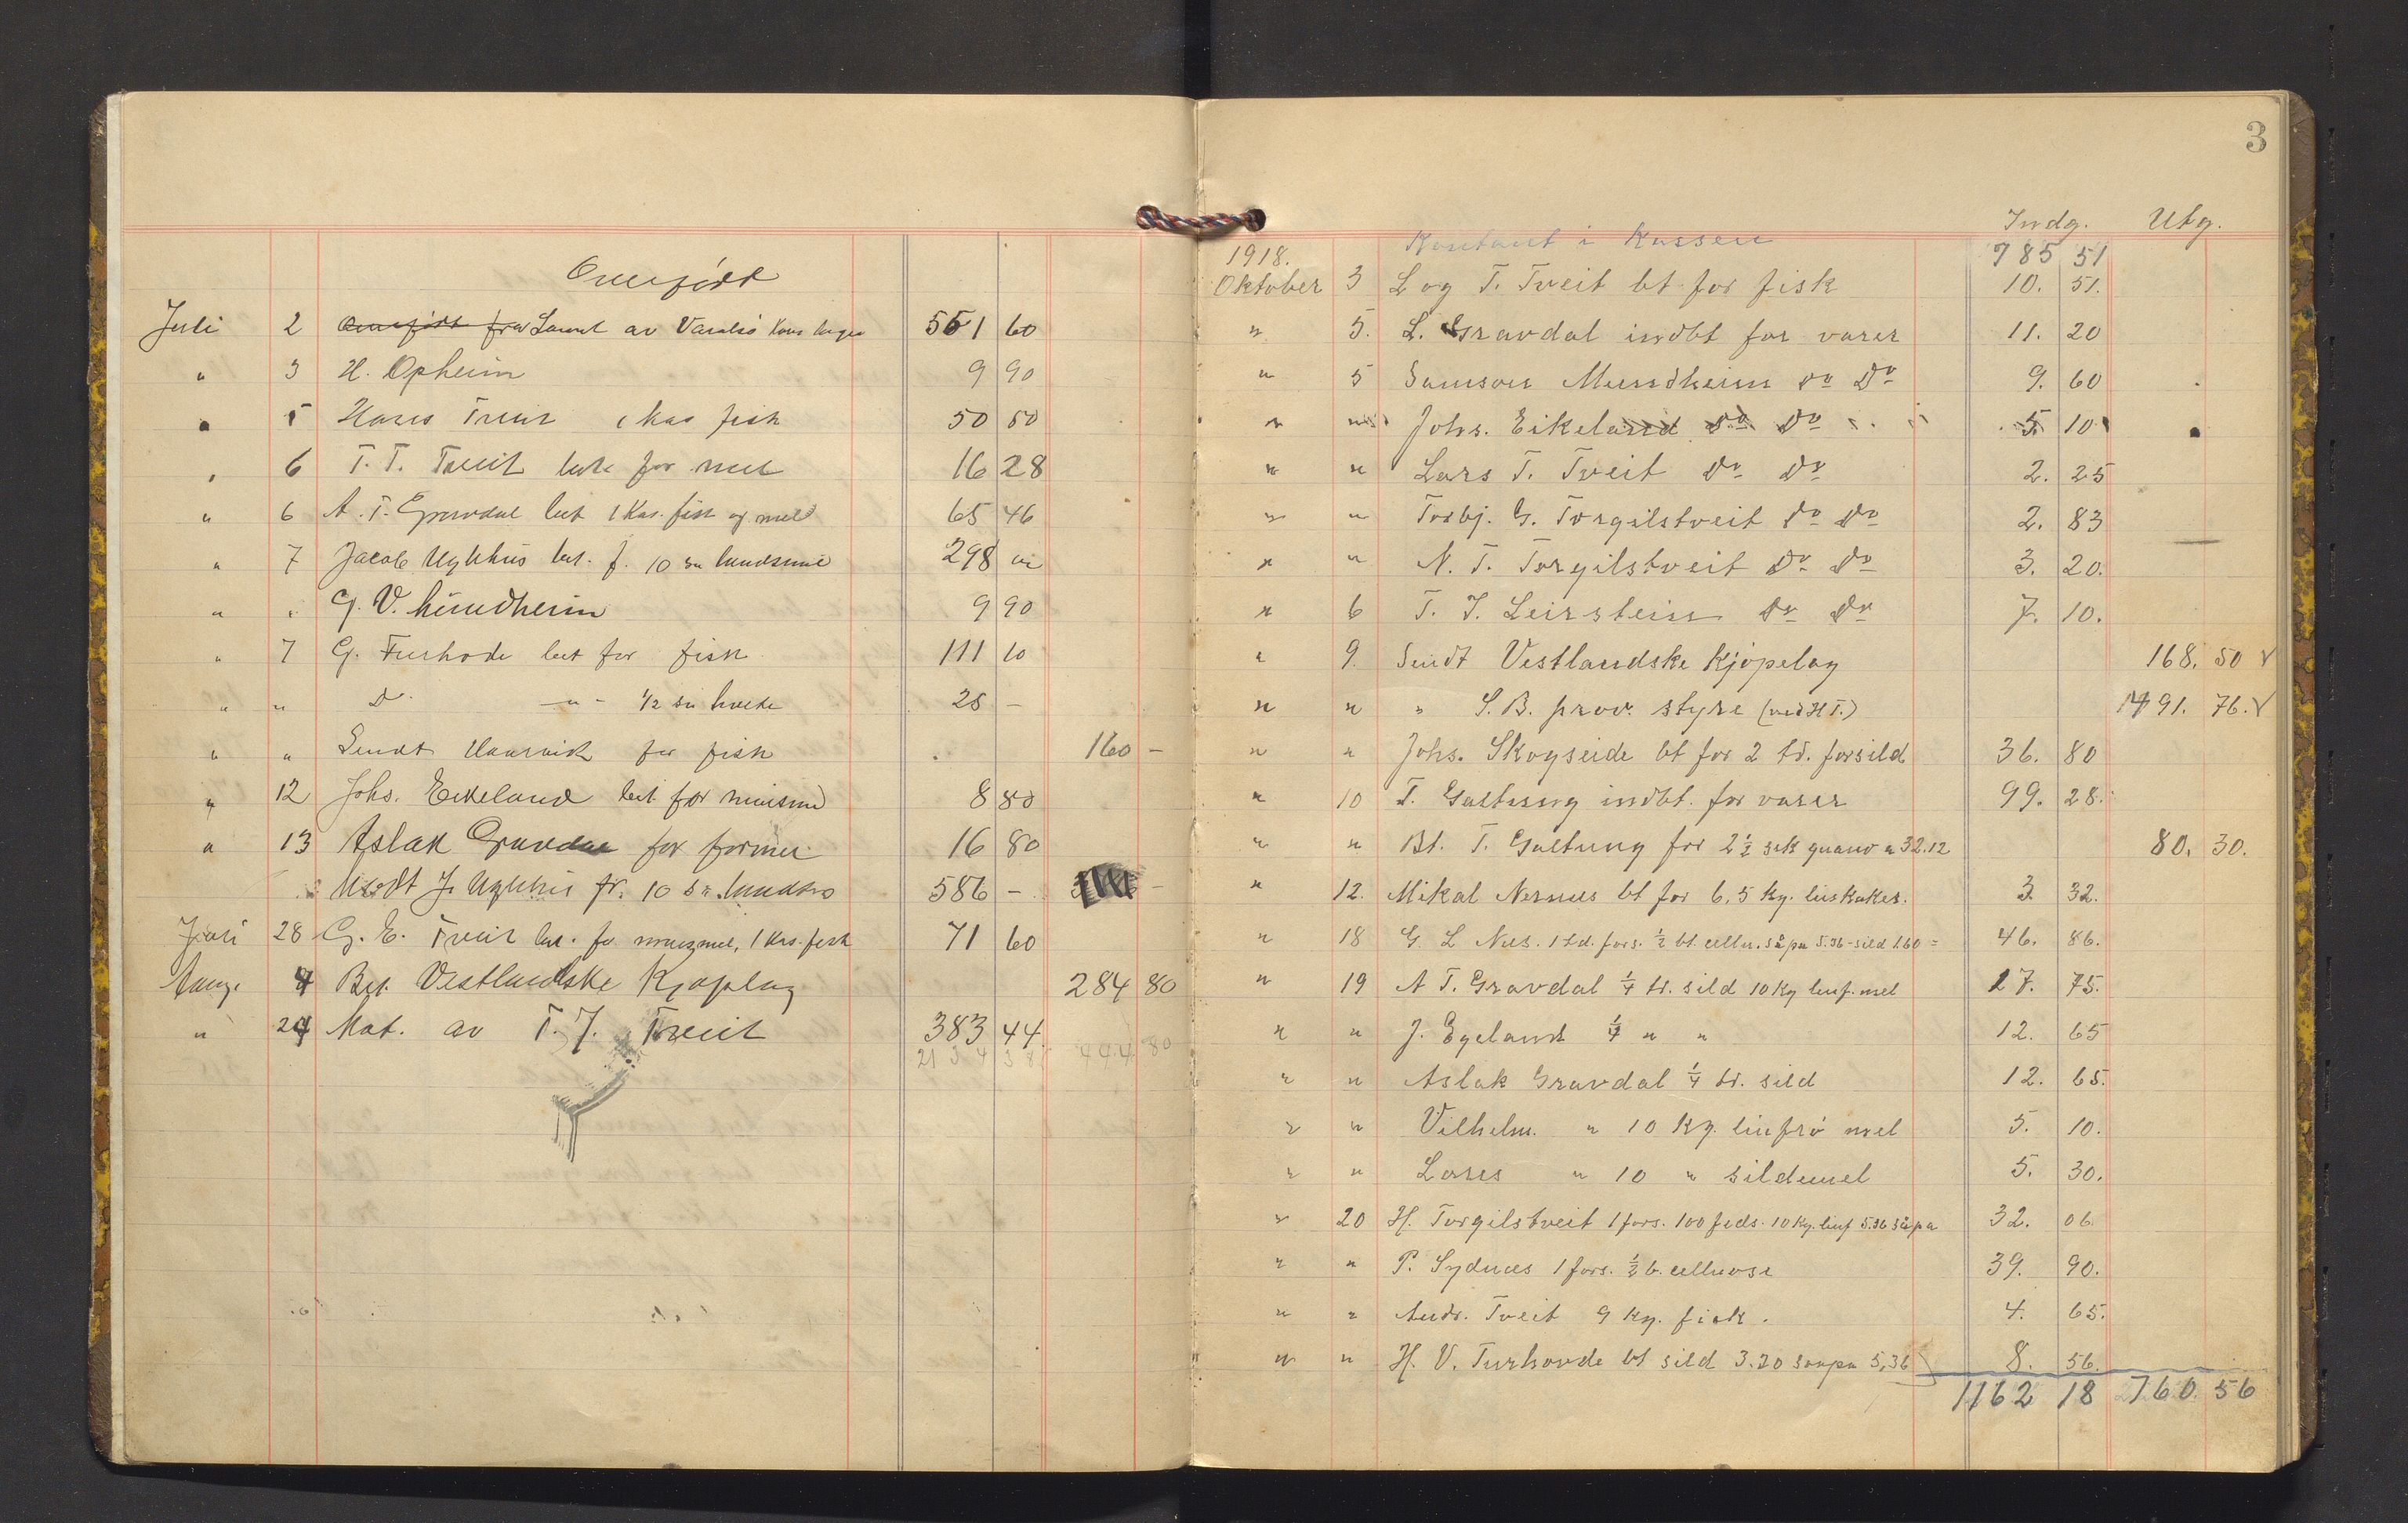 Overført
Juli 2 av 551 60
" 3 H. Opheim 9 90
" 5 Hans Tveit 1 kas fisk 50 50
" 6 T. T. Tveit bet for mel 16 28
" 6 A. T. Gravdal bet 1 Kas. fisk og mel 65 46
" 7 Jacob bet. f. 10 298
" " G. V. Mundheim 9 90
" 7 G. bet for fisk 111 10
" " Do — " — 1/2 sk 25 —
" " Sendt for fisk 160 —
" 12 Johs. Eikeland bet for 8 80
" 13 Aslak Gravdal for 16 80
J. 10 586 —
Juli 28 G. E. Tveit bet. for 1 kas. fisk 71 60
Aug. 4 Bet. Vestlandske Kjøplag 284 80
" 24 Mot. av T. J. Tveit 383 44
444 80
3
Indg. Utg.
Kontant i Kassen 785 51
1918.
Oktober 3 L og T. Tveit bt for fisk 10. 51.
" 5. L. Gravdal indbt for varer 11. 20
" 5 Samson Mundheim do Do 9. 60
" " Johs. Eikeland do Do 5. 10
" " Lars T. Tveit Do Do 2. 25
" " Torbj. G. Torgilstveit Do Do 2. 83
" " N. T. Torgilstveit Do Do 3. 20.
" 6 T. J. Leirstein Do Do 7. 10.
" 9. Sendt Vestlandske Kjøpelag 168. 50 v
" " " S. B. prov. styre (ved H T.) 491. 76. v
" " Johs. Skogseide bt for 2 td. forsild 36. 80
" 10 T. Galtung indbt. for varer 99. 28.
" " Bt. T. Galtung for 2 1/2 sek guano a 32.12 80. 30.
" 12. Mikal Nernes bt for 6,5 kg. linkaker. 3 32.
" 18 G. L Nes. 1 td. fors. 1/2 bt. cellu. såpa 5.36 - sild 1.60 = 46. 86.
" 19 A T. Gravdal 1/4 td. sild 10 Kg linf. mel 17. 75.
" " J. Egeland 1/4 " " 12. 65
" " Aslak Gravdal 1/4 td. sild 12. 65.
" " Vilhelm. " 10 Kg. linfrø mel 5. 10.
" " Lars " 10 " sildemel 5. 30.
" 20 H. Torgilstveit 1 fors. 100 feds. 10 Kg. linf 5.36 såpa 32. 06.
" " P. Sydnes 1 fors. 1/2 b. cellulose 39. 90.
" " Andr. Tveit 9 kg. fisk. 4. 65.
" " H. V. Turhovde bt sild 3.20 saapa 5,36 8. 56.
1162 18 760. 56